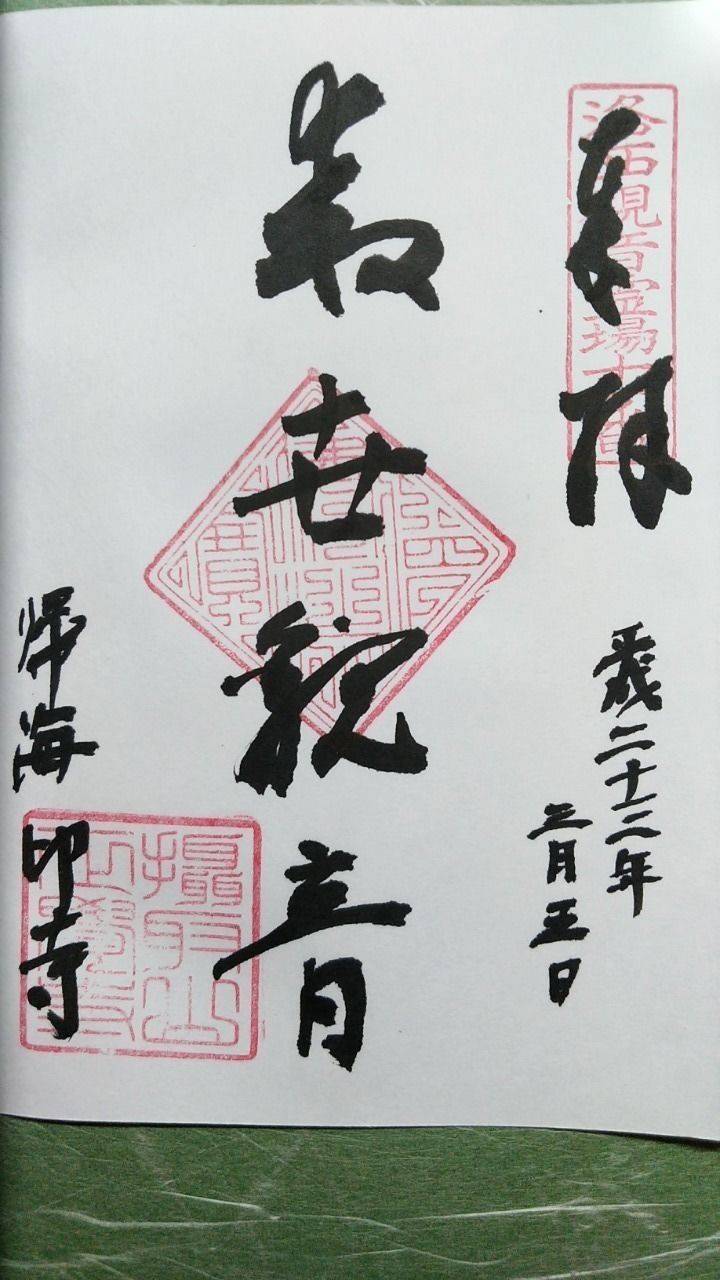 洛西観音霊場十番
奉拝
平成二十二年
三月五日
救世観音
帰海印寺